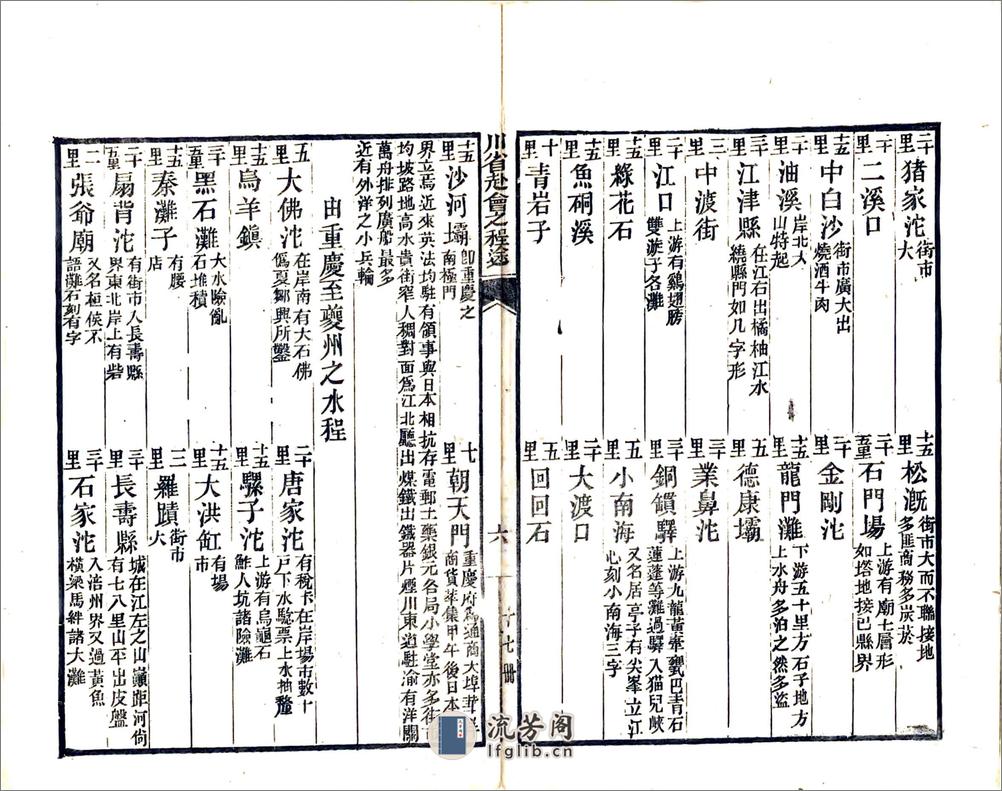 二十里 猪家沱 街市大
十五里 松溉 街市大而不聯接地多匪商務多炭菸
里 二溪口
二十五里 石門場 上游有廟七層形如塔地接巴縣界
十五里 中白沙 街市廣大出燒酒牛肉
二十里 金剛沱
二十里 油溪 岸北大山特起
十五里 龍門灘 下游五十里方石子地方上水舟多泊之然多盜
二十里 江津縣 在江右出橘柚江水繞縣門如几字形
五里 德康壩
三里 中渡街
十五里 業鼻沱
二十里 江口 上游有鷄翅膀雙漩子各灘
三十里 銅鑵驛 上游九龍萱牽甕巴青石蓮蓬等難過驛入猫兒峽
十五里 綠花石
五里 小南海 又名居亭子有尖峯立江心刻小南海三字
十五里 魚硐溪
二十里 大渡口
十里 青岩子
五里 回回石
川省赴會之程途
六
十七冊
十五里 沙河壩 卽重慶之南極門
七里 朝天門 重慶府爲通商大埠華洋商貨萃集甲午後日本
界立焉近來英法均駐有領事與日本相抗存電郵土藥銀元各局小學堂亦多街
均坡路地高水貴街窄人稠對面爲江北廳出煤鐵出鐵器片煙川東道駐渝有洋關
萬舟排列廣船最多
近有外洋之小兵輪
由重慶至夔州之水程
五里 大佛沱 在岸南有大石佛僞夏鄒興所鑿
二十里 唐家沱 有稅卡在岸場市數十戶下水驗票上水抽釐
十五里 烏羊鎭
十五里 騾子沱 上游有烏龜石鮓人坑諸險灘
三十五里 黑石灘 大水險亂石堆積
十五里 大洪缸 有場市
十五里 秦灘子 有腰店
三里 羅蹟 街市大
二十五里 扇背沱 有街市人長壽縣界東北岸上有砦
三十里 長壽縣 城在江左之山巔距河尙有七八里山平出皮盤
二里 張爺廟 又名桓侯不語灘石刻有字
三十里 石家沱 入涪州界又過黃魚橫梁馬絆諸大灘
流芳阁
lfglib.cn